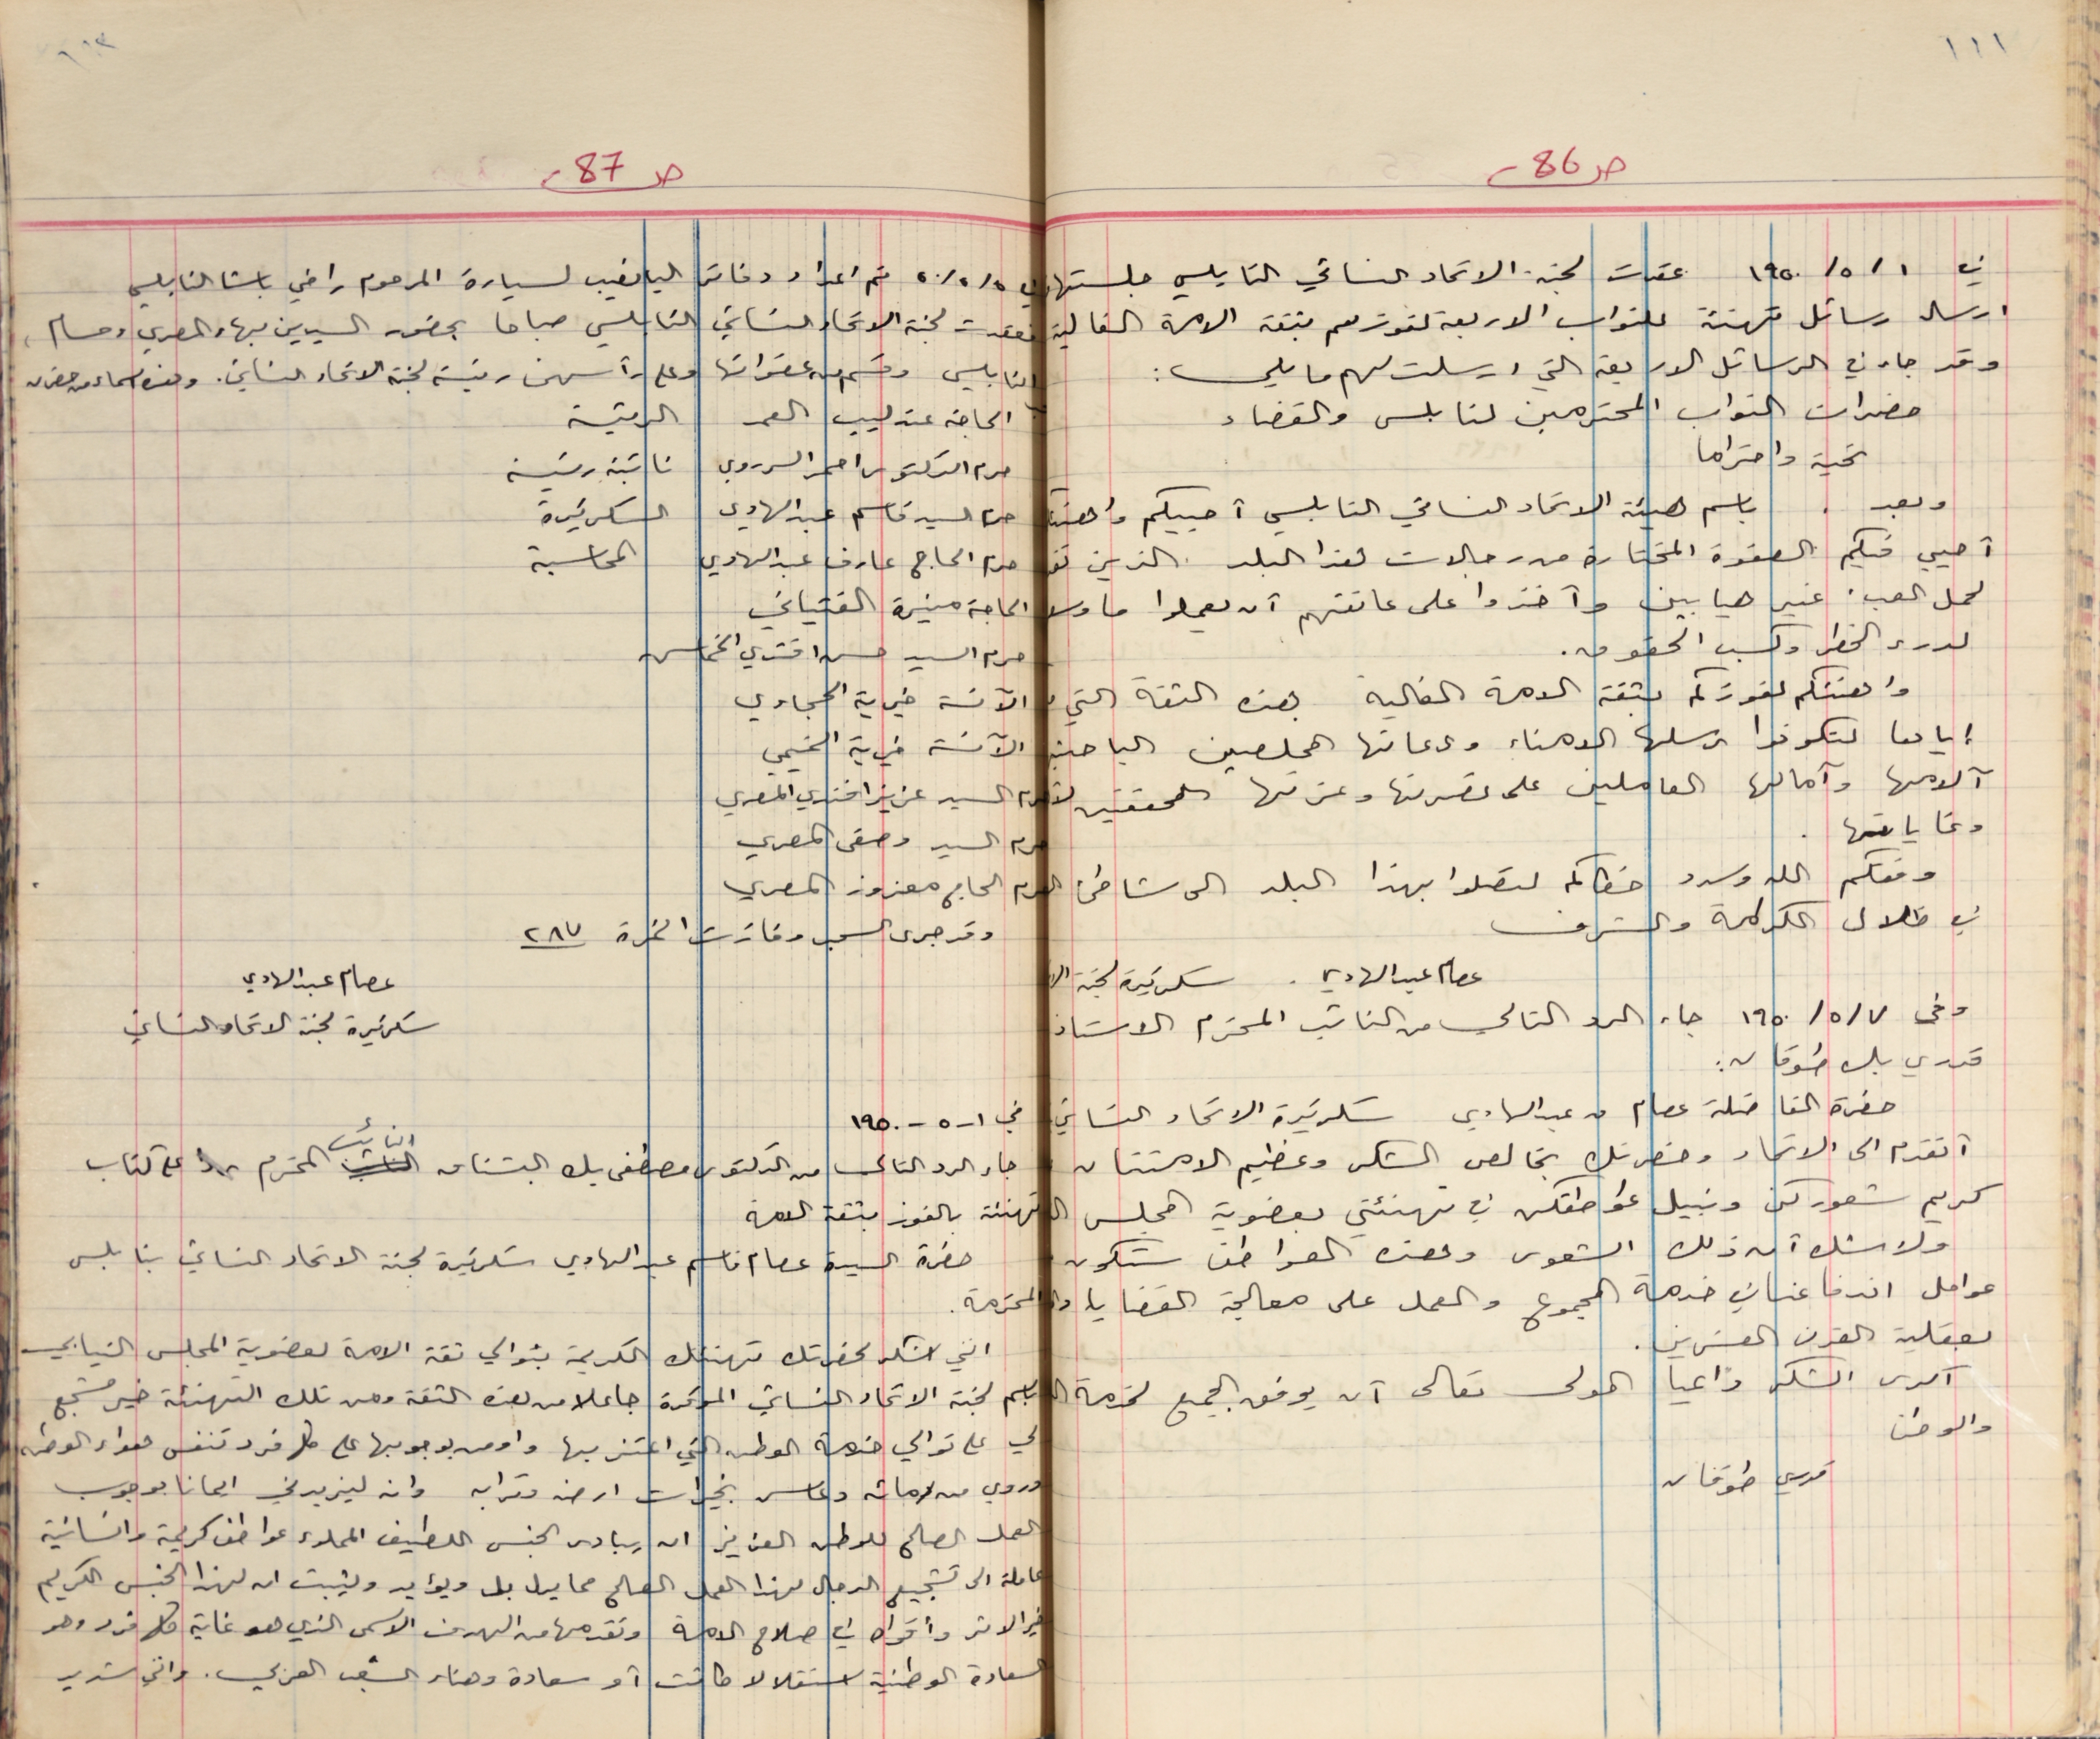 ١١١
صـ 86
في ١ / ٥ / ١٩٥٠ عقدت لجنة الاتحاد النسائي النابلسي جلستها
ارسال رسائل تهنئة للنواب الاربعة لفوزهم بثقة الامة الغالية
وقد جاء في الرسائل الاربعة التي ارسلت لهم ما يلي :
حضرات النواب المحترمين لنابلس والقضاء
تحية واحتراما
وبعد . باسم هيئة الاتحاد النسائي النابلسي أحييكم واهنئكم
أحيي فيكم الصفوة المختارة من رجالات هذا البلد الذين
لحمل العبء غير هيابين وآخذوا على عاتقهم أن يعملوا ما
لدرء الخطر وكسب الحقوق .
واهنئكم لفوزكم بثقة الامة الغالية هذه الثقة التي
إياها لتكونوا رسلها الامناء ودعاتها المخلصين
آلامها وآمالها العاملين على نصرتها وعزتها المحققين
وغاياتها .
وفقكم الله وسدد خطاكم لتصلوا بهذا البلد الى شاطئ
في ظلال الكرامة والشرف
عصام عبد الهادي . سكرتيرة لجنة
وفي ٧ / ٥ / ١٩٥٠ جاء الرد التالي من النائب المحترم الاستاذ
قدري بك طوقان :
حضرة الفاضلة عصام عبد الهادي سكرتيرة الاتحاد النسائي
أتقدم الى الاتحاد وحضرتك بخالص الشكر وعظيم الامتنان
كريم شعوركن ونبيل عواطفكن في تهنئتي بعضوية المجلس
ولا شك أن ذلك الشعور وهذه العواطف ستكون
عوامل اندفاعنا في خدمة المجموع والعمل على معالجة القضايا
بعقلية القرن العشرين .
أكرر الشكر داعيا المولى تعالى أن يوفق الجميع لخدمة
والوطن
قدري طوقان
صـ 87
تم اعداد دفاتر اليانصيب لسيارة المرحوم راضي باشا النابلسي
فعقدت لجنة الاتحاد النسائي النابلسي صباحا بحضور السيدين بهاء المصري وحسام
النابلسي وقسم من عضواتها وعلى رأسهن رئيسة لجنة الاتحاد النسائي . وهذه اسماء من حضرن
الحاجة عندليب العمد الرئيسة
حرم الدكتور احمد السروري نائبة رئيسة
حرم السيد قاسم عبد الهادي السكرتيرة
حرم الحاج عارف عبد الهادي المحاسبة
الحاجة منيرة الفتياني
حرم السيد حسن افندي الخماش
الآنسة خيرية الحجاوي
الآنسة فخرية
حرم السيد عزيز افندي المصري
حرم السيد وصفي المصري
حرم الحاج معزوز المصري
وقد جرى السحب وفازت النمرة ٢٨٧
عصام عبد الهادي
سكرتيرة لجنة الاتحاد النسائي
في ١ - ٥ - ١٩٥٠
جاء الرد التالي من الدكتور مصطفى بك البشناق النائب المحترم ردا على كتاب
التهنئة بالفوز بثقة الامة
حضرة السيدة عصام قاسم عبد الهادي سكرتيرة لجنة الاتحاد النسائي بنابلس
المحترمة .
انني اشكر لحضرتك تهنئتك الكريمة بتوالي ثقة الامة لعضوية المجلس النيابي
باسم لجنة الاتحاد النسائي الموقرة جاعلا من هذه الثقة ومن تلك التهنئة خير مشجع
لي على توالي خدمة الوطن التي اعتز بها واومن بوجوبها على كل فرد تنفس هواء الوطن
وروي من مائه وعاش بخيرات ارضه وترابه وانه ليزيدني ايمانا بوجوب
العمل الصالح للوطن العزيز ان يبادر الجنس اللطيف المملوء عواطف كريمة وانسانية
عاملة الى تشجيع الرجال لهذا العمل الصالح مما يدل بل ويؤيد ويثبت ان لهذا الجنس الكريم
خير الاثر وأقواه في صلاح الامة وتقدمها من الهدف الاسمى الذي هو غاية كل فرد وهو
السعادة الوطنية استقلالا كانت أو سعادة وهناء الشعب العربي . واني شديد